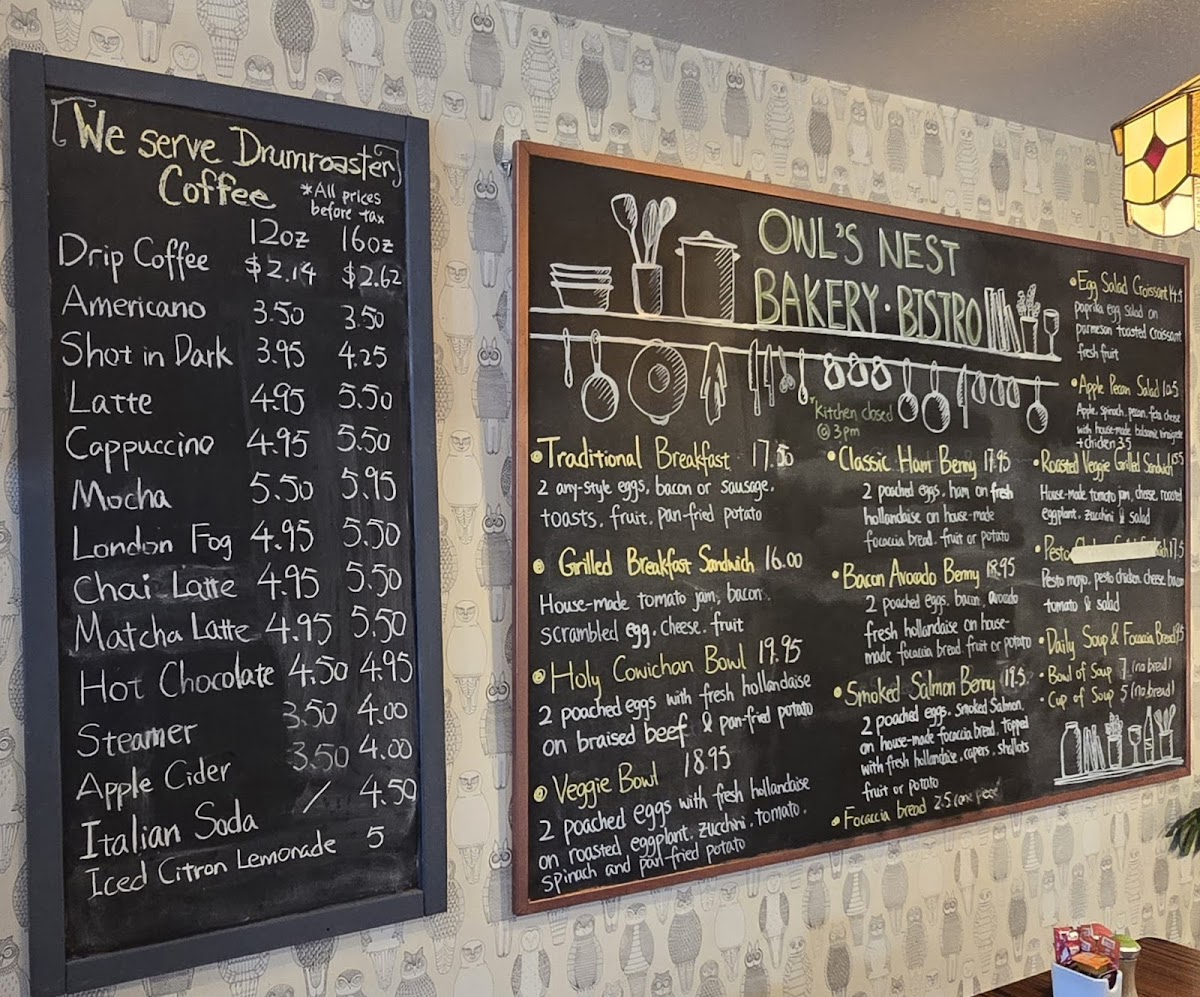 We serve Drumroaster
Coffee *All prices
before tax
12oz 16oz
Drip Coffee $2.14 $2.62
Americano 3.50 3.50
Shot in Dark 3.95 4.25
Latte 4.95 5.50
Cappuccino 4.95 5.50
Mocha 5.50 5.95
London Fog 4.95 5.50
Chai Latte 4.95 5.50
Matcha Latte 4.95 5.50
Hot Chocolate 4.50 4.95
Steamer 3.50 4.00
Apple Cider 3.50 4.00
Italian Soda / 4.50
Iced Citron Lemonade 5
OWL'S NEST
BAKERY · BISTRO
"Kitchen closed
@ 3pm
Traditional Breakfast 17.50
2 any-style eggs, bacon or sausage,
toasts, fruit, pan-fried potato
Grilled Breakfast Sandwich 16.00
House-made tomato jam, bacon,
scrambled egg, cheese, fruit
Holy Cowichan Bowl 19.95
2 poached eggs with fresh hollandaise
on braised beef & pan-fried potato
Veggie Bowl 18.95
2 poached eggs with fresh hollandaise
on roasted eggplant, zucchini, tomato,
spinach and pan-fried potato
Classic Ham Benny 17.95
2 poached eggs, ham on fresh
hollandaise on house-made
focaccia bread. fruit or potato
Bacon Avocado Benny 18.95
2 poached eggs, bacon, avocado
fresh hollandaise on house-
made focaccia bread. fruit or potato
Smoked Salmon Benny 19.5
2 poached eggs, smoked salmon,
on house-made focaccia bread, topped
with fresh hollandaise, capers, shallots
fruit or potato
Focaccia bread 2.5 (one piece)
Egg Salad Croissant 14.5
paprika egg salad on
parmesan toasted croissant
fresh fruit
Apple Pecan Salad
Apple, spinach, pecan, feta cheese
with house-made balsamic vinaigrette
+ chicken 3.5
Roasted Veggie Grilled Sandwich
House-made tomato jam, cheese, roasted
eggplant, zucchini & salad
Pesto 17.5
Pesto mayo, pesto chicken, cheese, bacon
tomato & salad
Daily Soup & Focaccia Bread
Bowl of Soup 7 (no bread)
Cup of Soup 5 (no bread)